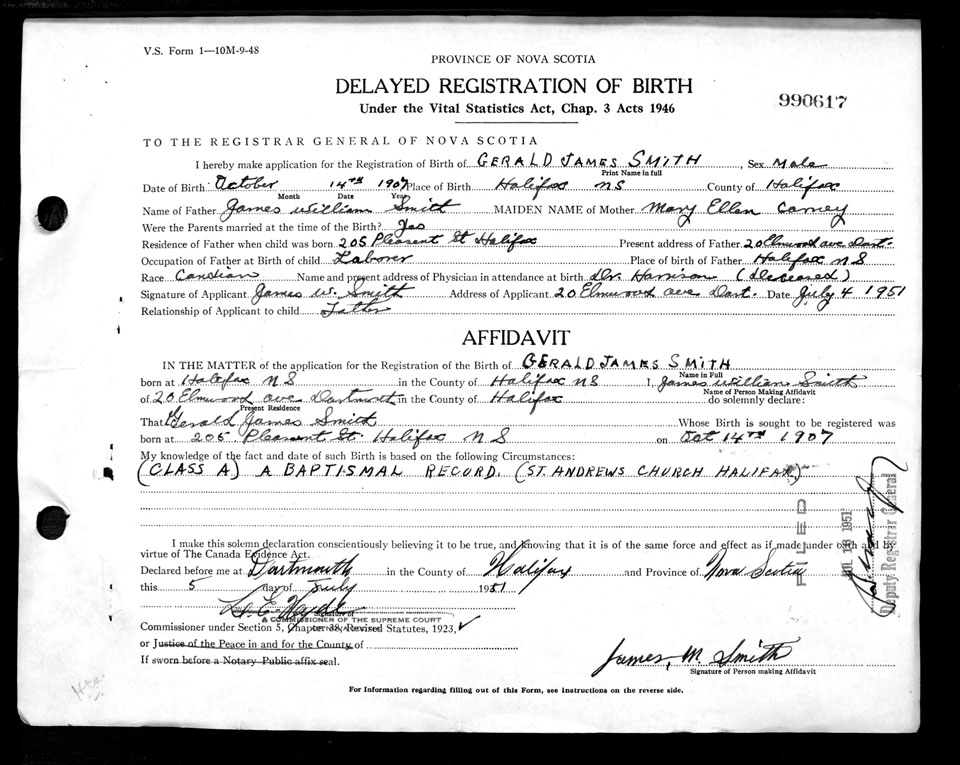 V.S. Form 1—10M-9-48
PROVINCE OF NOVA SCOTIA
DELAYED REGISTRATION OF BIRTH
990617
Under the Vital Statistics Act, Chap. 3 Acts 1946
TO THE REGISTRAR GENERAL OF NOVA SCOTIA
I hereby make application for the Registration of Birth of GERALD JAMES SMITH, Sex Male
Print Name in full
Date of Birth October 14TH 1907 Place of Birth Halifax NS County of Halifax
Month Date Year
Name of Father James William Smith MAIDEN NAME of Mother Mary Ellen Carney
Were the Parents married at the time of the Birth? Yes
Residence of Father when child was born 205 Pleasent St Halifax Present address of Father 20 Elmwood ave Dart.
Occupation of Father at Birth of child Laborer Place of birth of Father Halifax NS
Race Candian Name and present address of Physician in attendance at birth Dr. Harrison (Deceased)
Signature of Applicant James W. Smith Address of Applicant 20 Elmwood ave Dart. Date July 4 1951
Relationship of Applicant to child Father
AFFIDAVIT
IN THE MATTER of the application for the Registration of the Birth of GERALD JAMES SMITH
Name in Full
born at Halifax NS in the County of Halifax NS I, James William Smith
Name of Person Making Affidavit
of 20 Elmwood ave Dartmouth in the County of Halifax do solemnly declare:
Present Residence
That Gerald James Smith Whose Birth is sought to be registered was
born at 205 Pleasent St. Halifax NS on Oct 14TH 1907
My knowledge of the fact and date of such Birth is based on the following Circumstances:
(CLASS A) A BAPTISMAL RECORD. (ST. ANDREWS CHURCH HALIFAX)
FILED
JUL 10 1951
Deputy Registrar General
I make this solemn declaration conscientiously believing it to be true, and knowing that it is of the same force and effect as if made under oath and by
virtue of The Canada Evidence Act.
Declared before me at Dartmouth in the County of Halifax and Province of Nova Scotia
this 5 day of July 1951
Signature of
A COMMISSIONER OF THE SUPREME COURT
Commissioner under Section 5, Chapter 38, Revised Statutes, 1923,
or Justice of the Peace in and for the County of
If sworn before a Notary Public affix seal.
James, M. Smith
Signature of Person making Affidavit
For Information regarding filling out of this Form, see instructions on the reverse side.